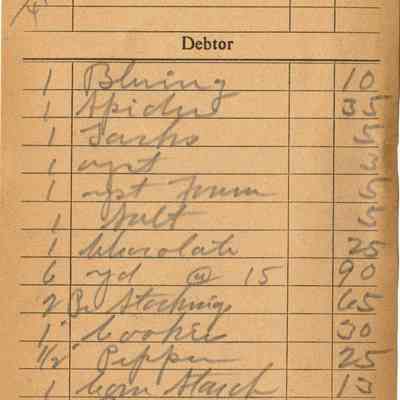 Debtor
1 Bluing 10
1 Spider 35
1 Tacks 5
1
1
1 Salt 5
1 Chocolate 25
6 yd @ 15 90
2 Pr Stockings 65
1 Cookies 30
1/2 Pepper 25
1 Corn Starch 13